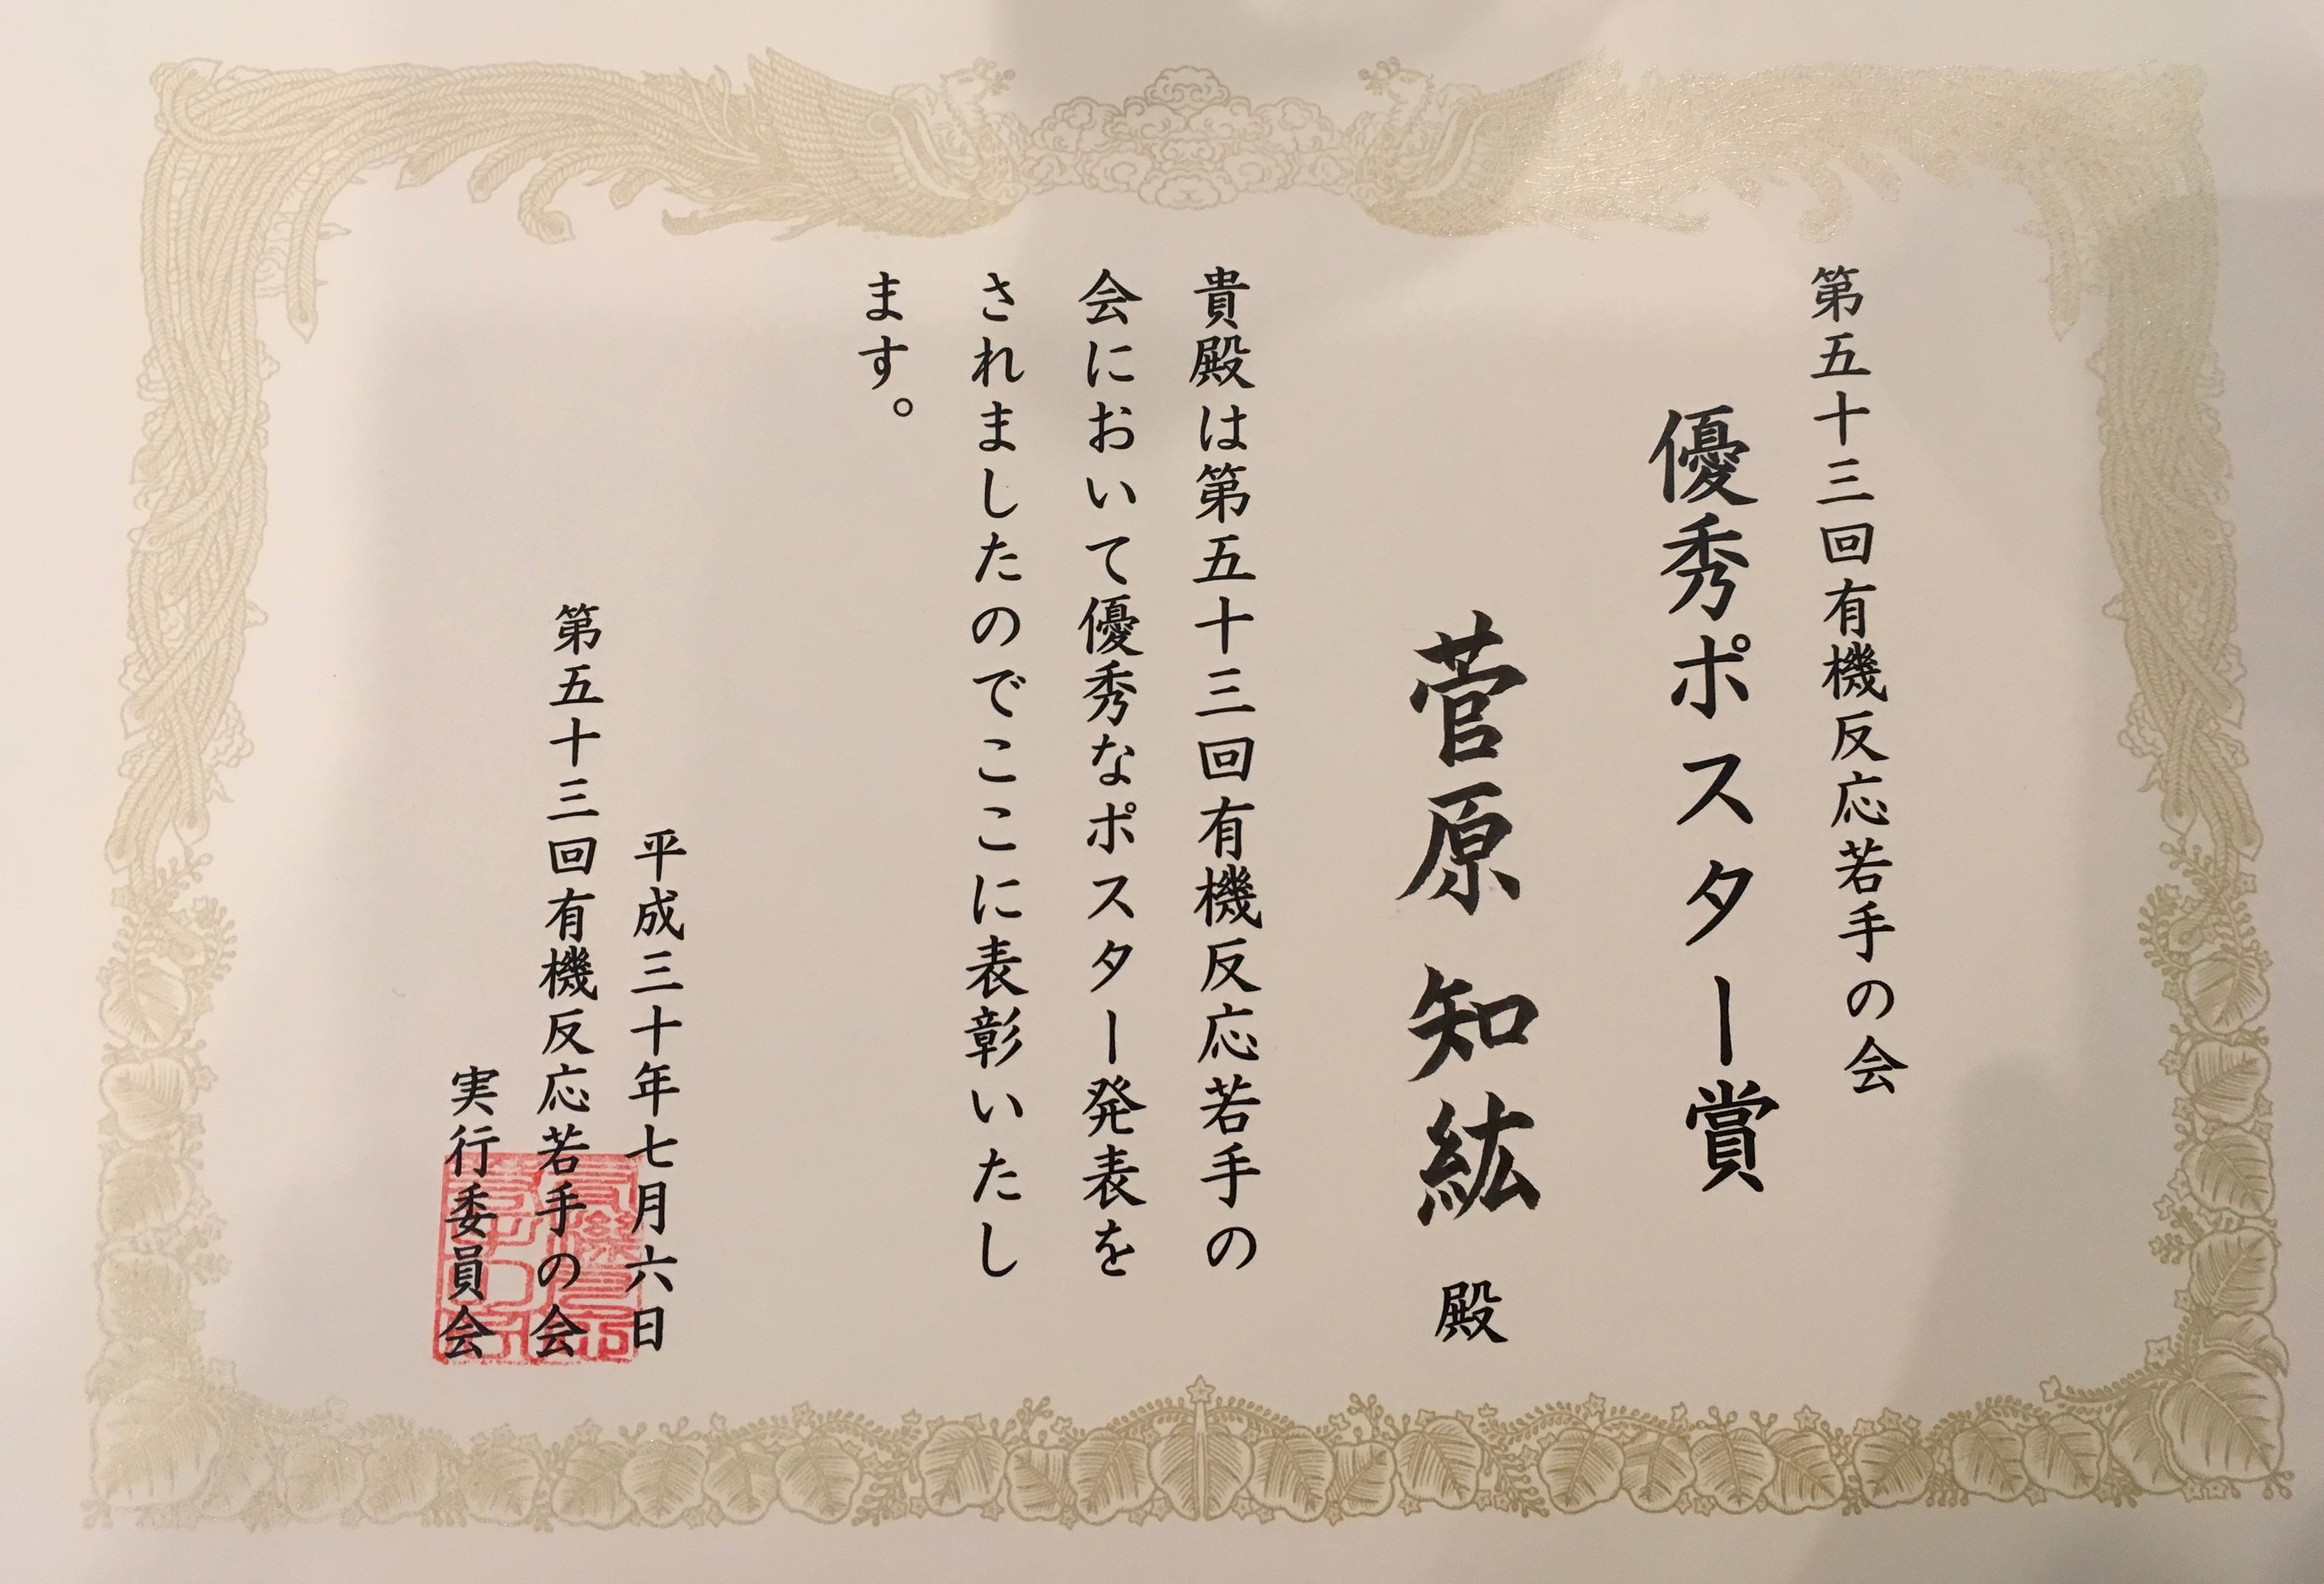 第五十三回有機反応若手の会
優秀ポスター賞
菅原 知紘 殿
貴殿は第五十三回有機反応若手の
会において優秀なポスター発表を
されましたのでここに表彰いたし
ます。
平成三十年七月六日
第五十三回有機反応若手の会
実行委員会